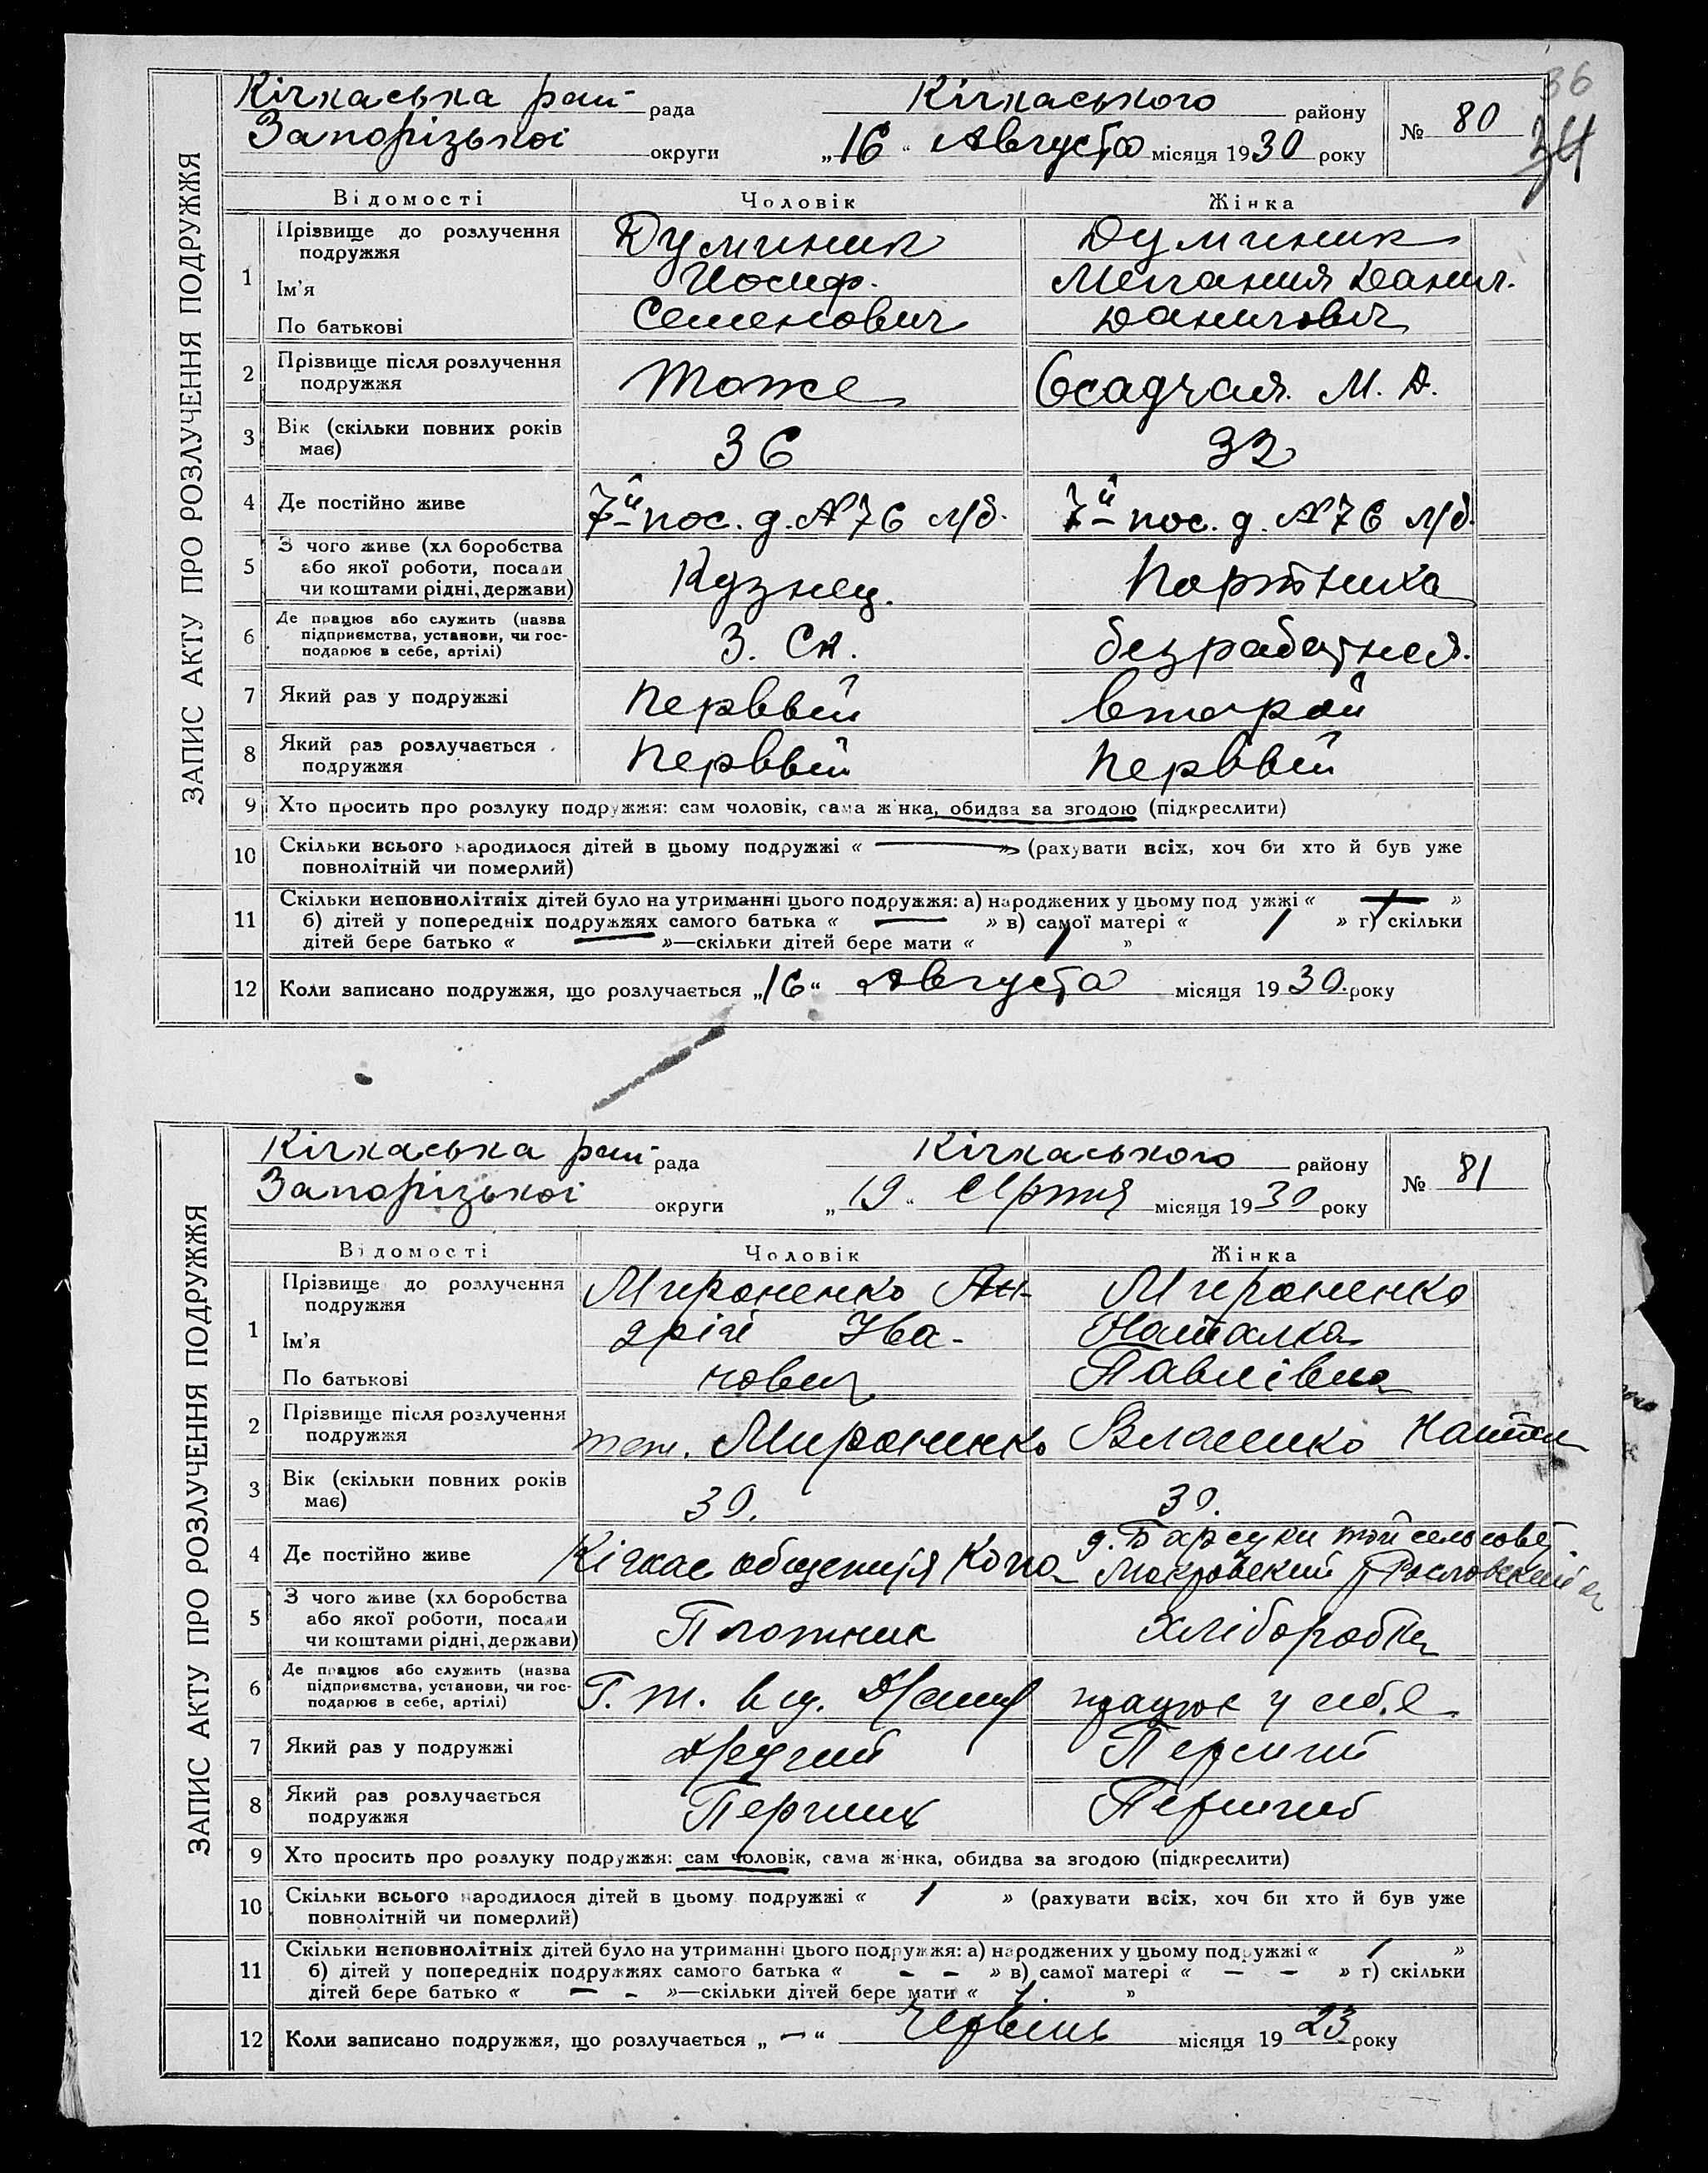 36
34
ЗАПИС АКТУ ПРО РОЗЛУЧЕННЯ ПОДРУЖЖЯ
Кічкаська рай рада Кічкаського району № 80
Запорізької округи „16“ Августа місяця 1930 року
Відомості Чоловік Жінка
1 Прізвище до розлучення подружжя Думчиник Думчиник
Ім'я Иосиф. Мелания Данил.
По батькові Семенович Данилович
2 Прізвище після розлучення подружжя Тоже Осадчая. М. Д.
3 Вік (скільки повних років має) 36 32
4 Де постійно живе 7й пос. д. №76 л/б. 7й пос. д. №76 л/б.
5 З чого живе (хліборобства або якої роботи, посади чи коштами рідні, держави) Кузнец. Портниха
6 Де працює або служить (назва підприємства, установи, чи господарює в себе, артілі) З. Ск. безработная.
7 Який раз у подружжі Первый второй
8 Який раз розлучається подружжя Первый Первый
9 Хто просить про розлуку подружжя: сам чоловік, сама жінка, обидва за згодою (підкреслити)
10 Скільки всього народилося дітей в цьому подружжі « — » (рахувати всіх, хоч би хто й був уже
повнолітній чи померлий)
11 Скільки неповнолітніх дітей було на утриманні цього подружжя: а) народжених у цьому подружжі « — »
б) дітей у попередніх подружжях самого батька « — » в) самої матері « 1 » г) скільки
дітей бере батько « — »—скільки дітей бере мати « 1 »
12 Коли записано подружжя, що розлучається „16“ Августа місяця 1930 року
ЗАПИС АКТУ ПРО РОЗЛУЧЕННЯ ПОДРУЖЖЯ
Кічкаська рай рада Кічкаського району № 81
Запорізької округи „19“ Серпня місяця 1930 року
Відомості Чоловік Жінка
1 Прізвище до розлучення подружжя Мироненко Ан- Мироненко
Ім'я дрій Іва- Наталка
По батькові нович Павлівна
2 Прізвище після розлучення подружжя теж. Мироненко Власенко Натал
3 Вік (скільки повних років має) 30. 30.
4 Де постійно живе Кічкас д. Барсуки
5 З чого живе (хліборобства або якої роботи, посади чи коштами рідні, держави) Плотник Хліборобка
6 Де працює або служить (назва підприємства, установи, чи господарює в себе, артілі) працює у себе
7 Який раз у подружжі Другий Перший
8 Який раз розлучається подружжя Перший Перший
9 Хто просить про розлуку подружжя: сам чоловік, сама жінка, обидва за згодою (підкреслити)
10 Скільки всього народилося дітей в цьому подружжі « 1 » (рахувати всіх, хоч би хто й був уже
повнолітній чи померлий)
11 Скільки неповнолітніх дітей було на утриманні цього подружжя: а) народжених у цьому подружжі « 1 »
б) дітей у попередніх подружжях самого батька « - - » в) самої матері « — — » г) скільки
дітей бере батько « — - »—скільки дітей бере мати « 1. »
12 Коли записано подружжя, що розлучається „—“ Червень місяця 1923 року